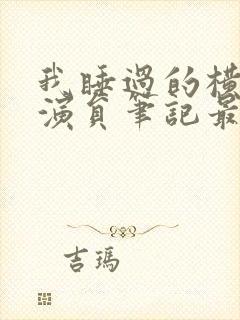 我睡過的橫
演員筆記最
吉瑪